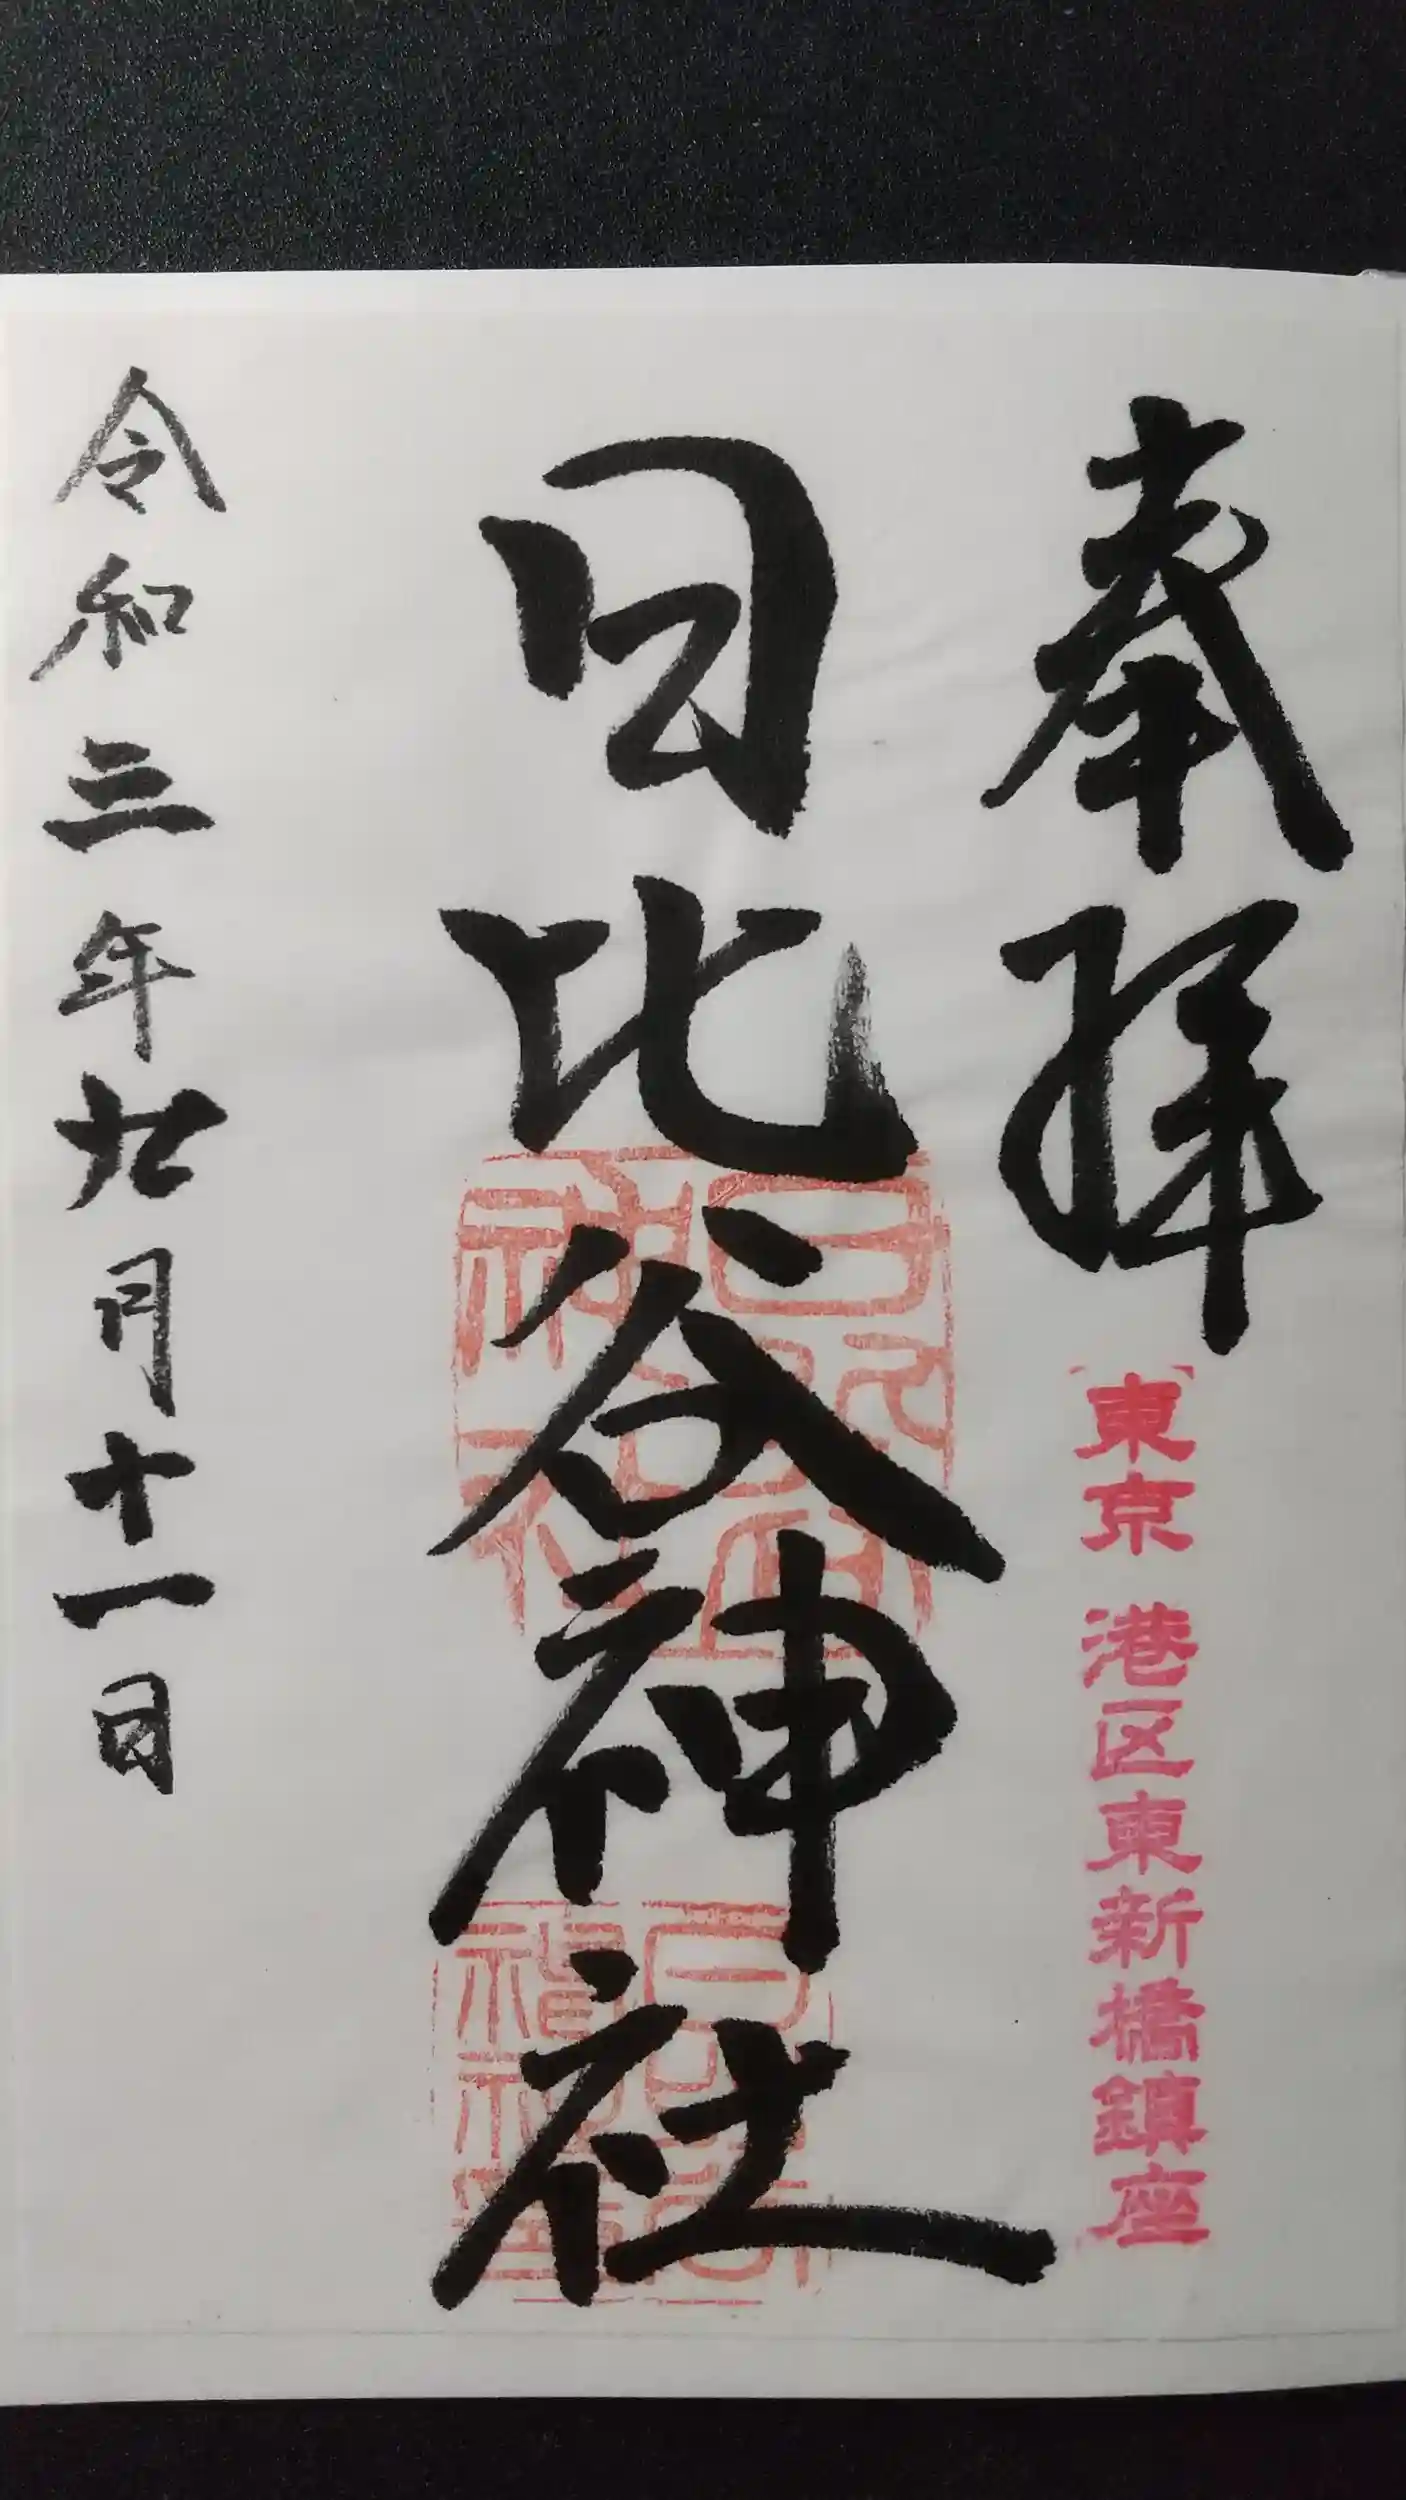 奉拝
東京 港区東新橋鎮座
日比谷神社
令和三年九月十一日